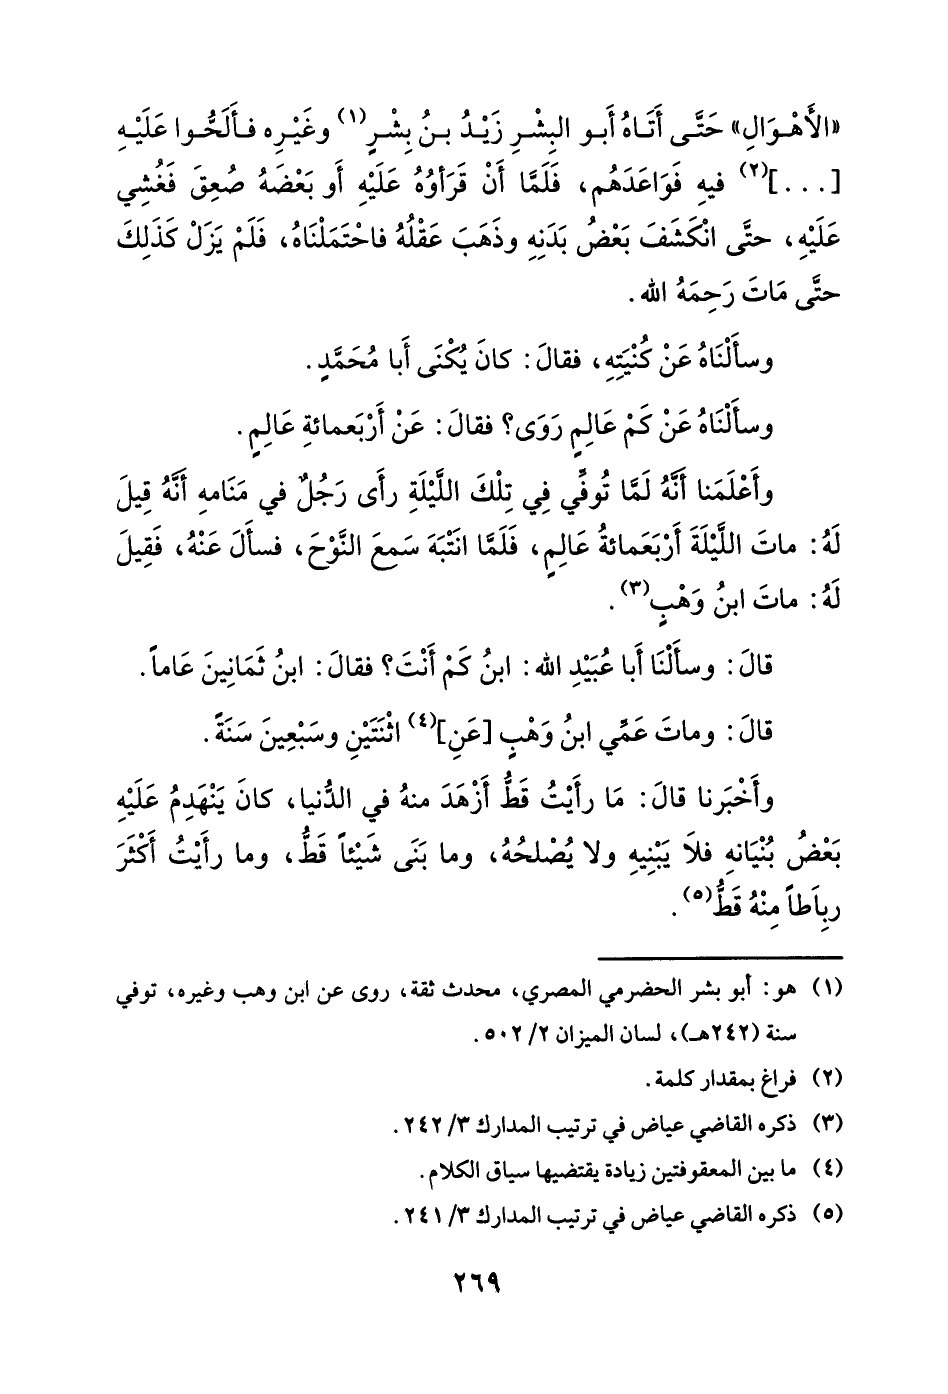 «الأَهْـوَالِ» حَتَّـى أَتَـاهُ أَبـو البِشْـرِ زَيْـدُ بـنُ بِشْـرٍ(١) وغَيْـرِه فـأَلَحُّـوا عَلَيْـهِ
[...](٢) فيهِ فَوَاعَدَهُم، فَلَمَّا أَنْ قَرَأوُهُ عَلَيْهِ أَو بَعْضَهُ صُعِقَ فَغُشِي
عَلَيْهِ، حتَّى انْكَشَفَ بَعْضُ بَدَنِهِ وذَهَبَ عَقْلُهُ فاحْتَمَلْنَاهُ، فَلَمْ يَزَلْ كَذَلِكَ
حتَّى مَاتَ رَحِمَهُ الله.
وسأَلْنَاهُ عَنْ كُنْيَتِهِ، فقالَ: كانَ يُكْنَى أَبا مُحَمَّدٍ.
وسأَلْنَاهُ عَنْ كَمْ عَالِمٍ رَوَى؟ فقالَ: عَنْ أَرْبَعمائةِ عَالِمٍ.
وأَعْلَمَنا أَنَّهُ لَمَّا تُوفِّي فِي تِلْكَ اللَّيْلَةِ رأى رَجُلٌ في مَنَامهِ أَنَّهُ قِيلَ
لَهُ: ماتَ اللَّيْلَةَ أَرْبَعَمائةُ عَالِمٍ، فَلَمَّا انْتَبَهَ سَمِعَ النَّوْحَ، فسأَلَ عَنْهُ، فَقِيلَ
لَهُ: ماتَ ابنُ وَهْبٍ(٣).
قالَ: وسأَلْنَا أَبا عُبَيْدِ الله: ابنُ كَمْ أَنْتَ؟ فقالَ: ابنُ ثَمَانِينَ عَاماً.
قالَ: وماتَ عَمِّي ابنُ وَهْبٍ [عَنِ](٤) اثْنَتَيْنِ وسَبْعِينَ سَنَةً.
وأَخْبَرنا قالَ: مَا رأَيْتُ قَطُّ أَزْهَدَ منهُ في الدُّنيا، كانَ يَنْهَدِمُ عَلَيْهِ
بَعْضُ بُنْيَانهِ فلاَ يَبْنِيهِ ولا يُصْلحُهُ، وما بَنَى شَيْئاً قَطُّ، وما رأَيْتُ أَكْثَرَ
رِباَطاً مِنْهُ قَطُّ(٥).
(١) هو: أبو بشر الحضرمي المصري، محدث ثقة، روى عن ابن وهب وغيره، توفي
سنة (٢٤٢هـ)، لسان الميزان ٢/ ٥٠٢.
(٢) فراغ بمقدار كلمة.
(٣) ذكره القاضي عياض في ترتيب المدارك ٣/ ٢٤٢.
(٤) ما بين المعقوفتين زيادة يقتضيها سياق الكلام.
(٥) ذكره القاضي عياض في ترتيب المدارك ٣/ ٢٤١.
٢٦٩